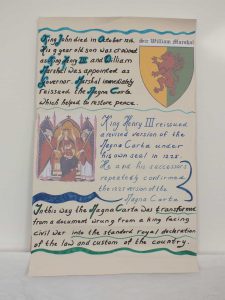 King John died in October 1216
His 9 year old son was crowned
as King Henry III and William
Marshal was appointed as
Governor. Marshal immediately
reissued the Magna Carta
which helped to restore peace.
Sir William Marshal
King Henry III reissued
a revised version of the
Magna Carta under
his own seal in 1225.
He and his successors
repeatedly confirmed
the 1225 version of the
Magna Carta
In this way the Magna Carta was transformed
from a document wrung from a king facing
civil war into the standard royal declaration
of the law and custom of the country.